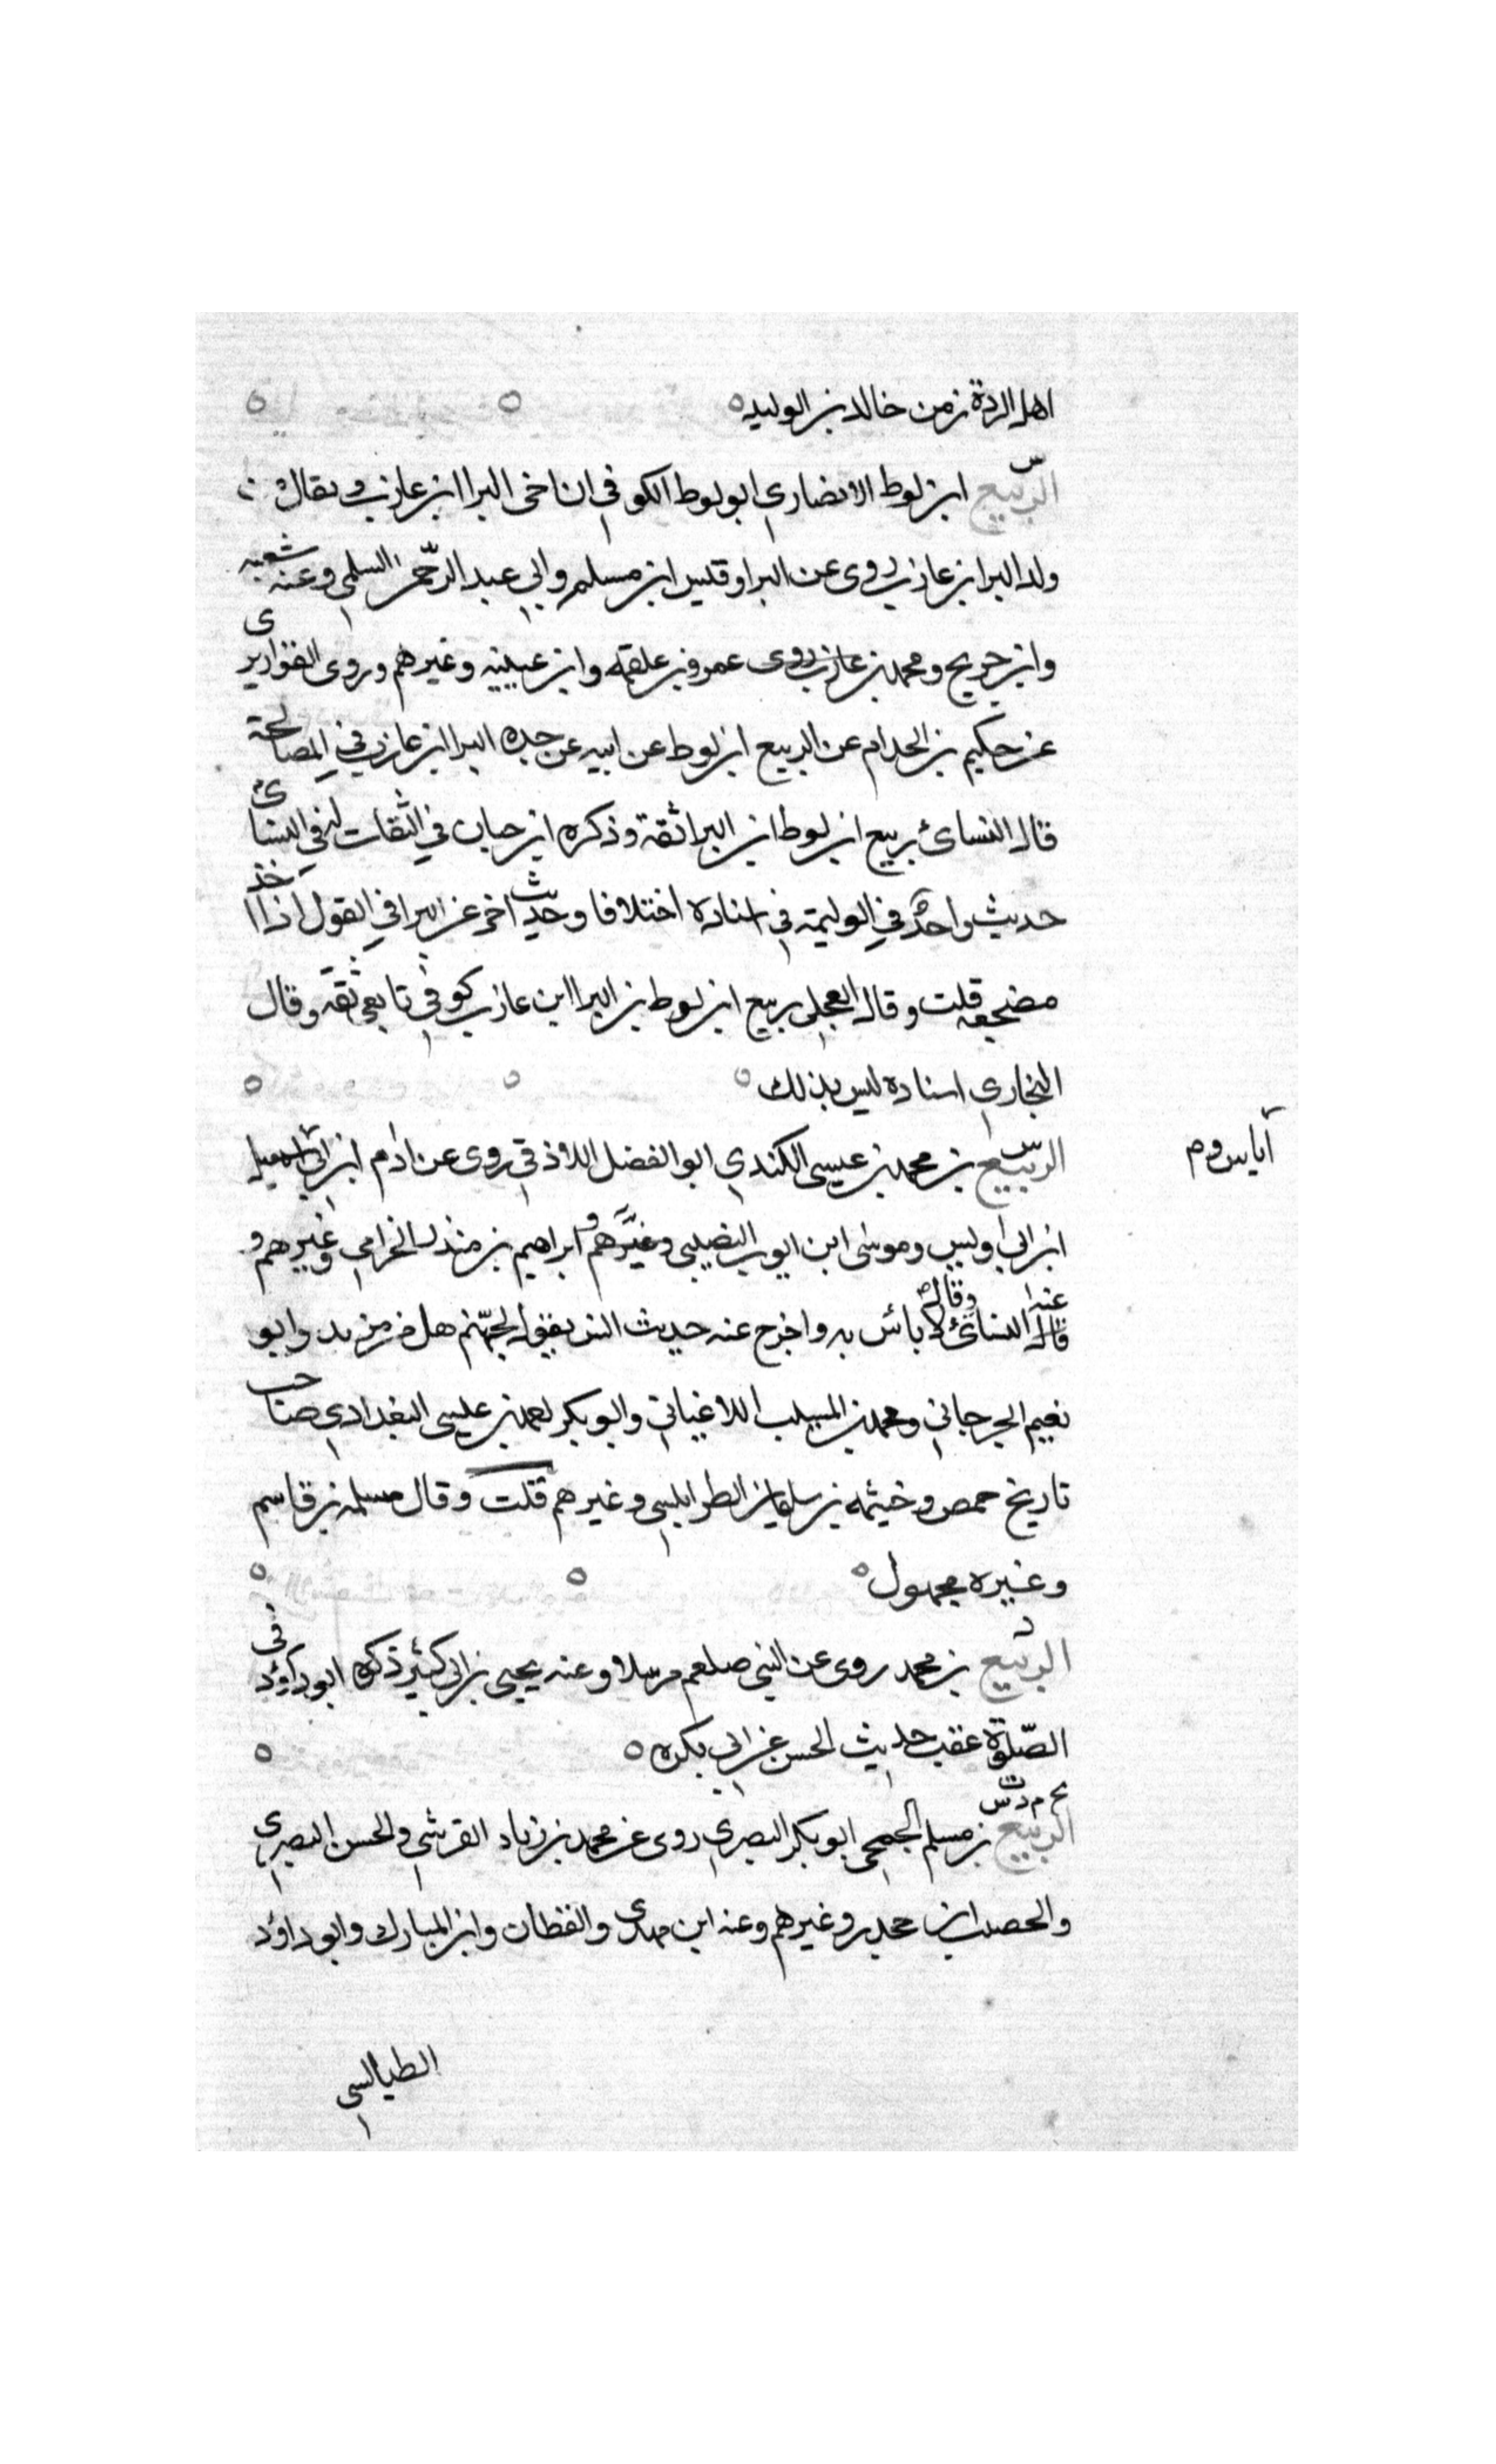 اهل الردة زمن خالد بن الوليد
س
الربيع ابن لوط الانصاري ابو لوط الكوفي ابن اخى البرا ابن عازب ويقال
ولد البرا بن عازب روى عن البرا وقيس ابن مسلم وابي عبد الرحمن السلمي وعنه شعبه
وابن جريج ومحمد بن عمرو بن علقمه وابن عيينه وغيرهم وروى القواريرى
عن حكيم بن الحذام عن الربيع ابن لوط عن ابيه عن جده البرا ابن عازب في المصالحة
قال النسائ ربيع ابن لوط ابن البرا ثقة وذكره ابن حبان في الثقات له في النسائ
حديث واحد في الوليمة في اسناده اختلافا وحديث اخر عن البرا في القول اذا اخذ
مضجعه قلت وقال العجلي ربيع ابن لوط بن البرا ابن عازب كوفي تابعي ثقة وقال
البخاري اسناده ليس بذلك
الربيع بن محمد بن عيسى الكندي ابو الفضل اللاذقي روى عن ادم ابن ابي
اياس وم
ابن ابي اويس وموسى ابن ايوب النصيبي وابراهيم بن منذر الخزامي وغيرهم و
عنه النسائ وقال لا بأس به واخرج عنه حديث انس يلقى لجهنم هل من مزيد وابو
نعيم الجرجاني ومحمد بن المسيب وابو بكر بن عيسى البغدادي صاحب
تاريخ حمص وخيثمه بن سليمان الطرابلسي وغيرهم قلت وقال مسلمه بن قاسم
وغيره مجهول
د
الربيع بن محمد روى عن النبي صلعم مرسلا وعنه يحيى بن ابي كثير ذكره ابو داؤد في
الصلوة عقب حديث الحسن عن ابي بكره
الربيع بن مسلم الجمحي ابو بكر البصري روى عن محمد بن زياد القرشي والحسن البصري
والحصيب ابن جحدر وغيرهم وعنه ابن مهدى والقطان وابن المبارك وابو داؤد
الطيالسي